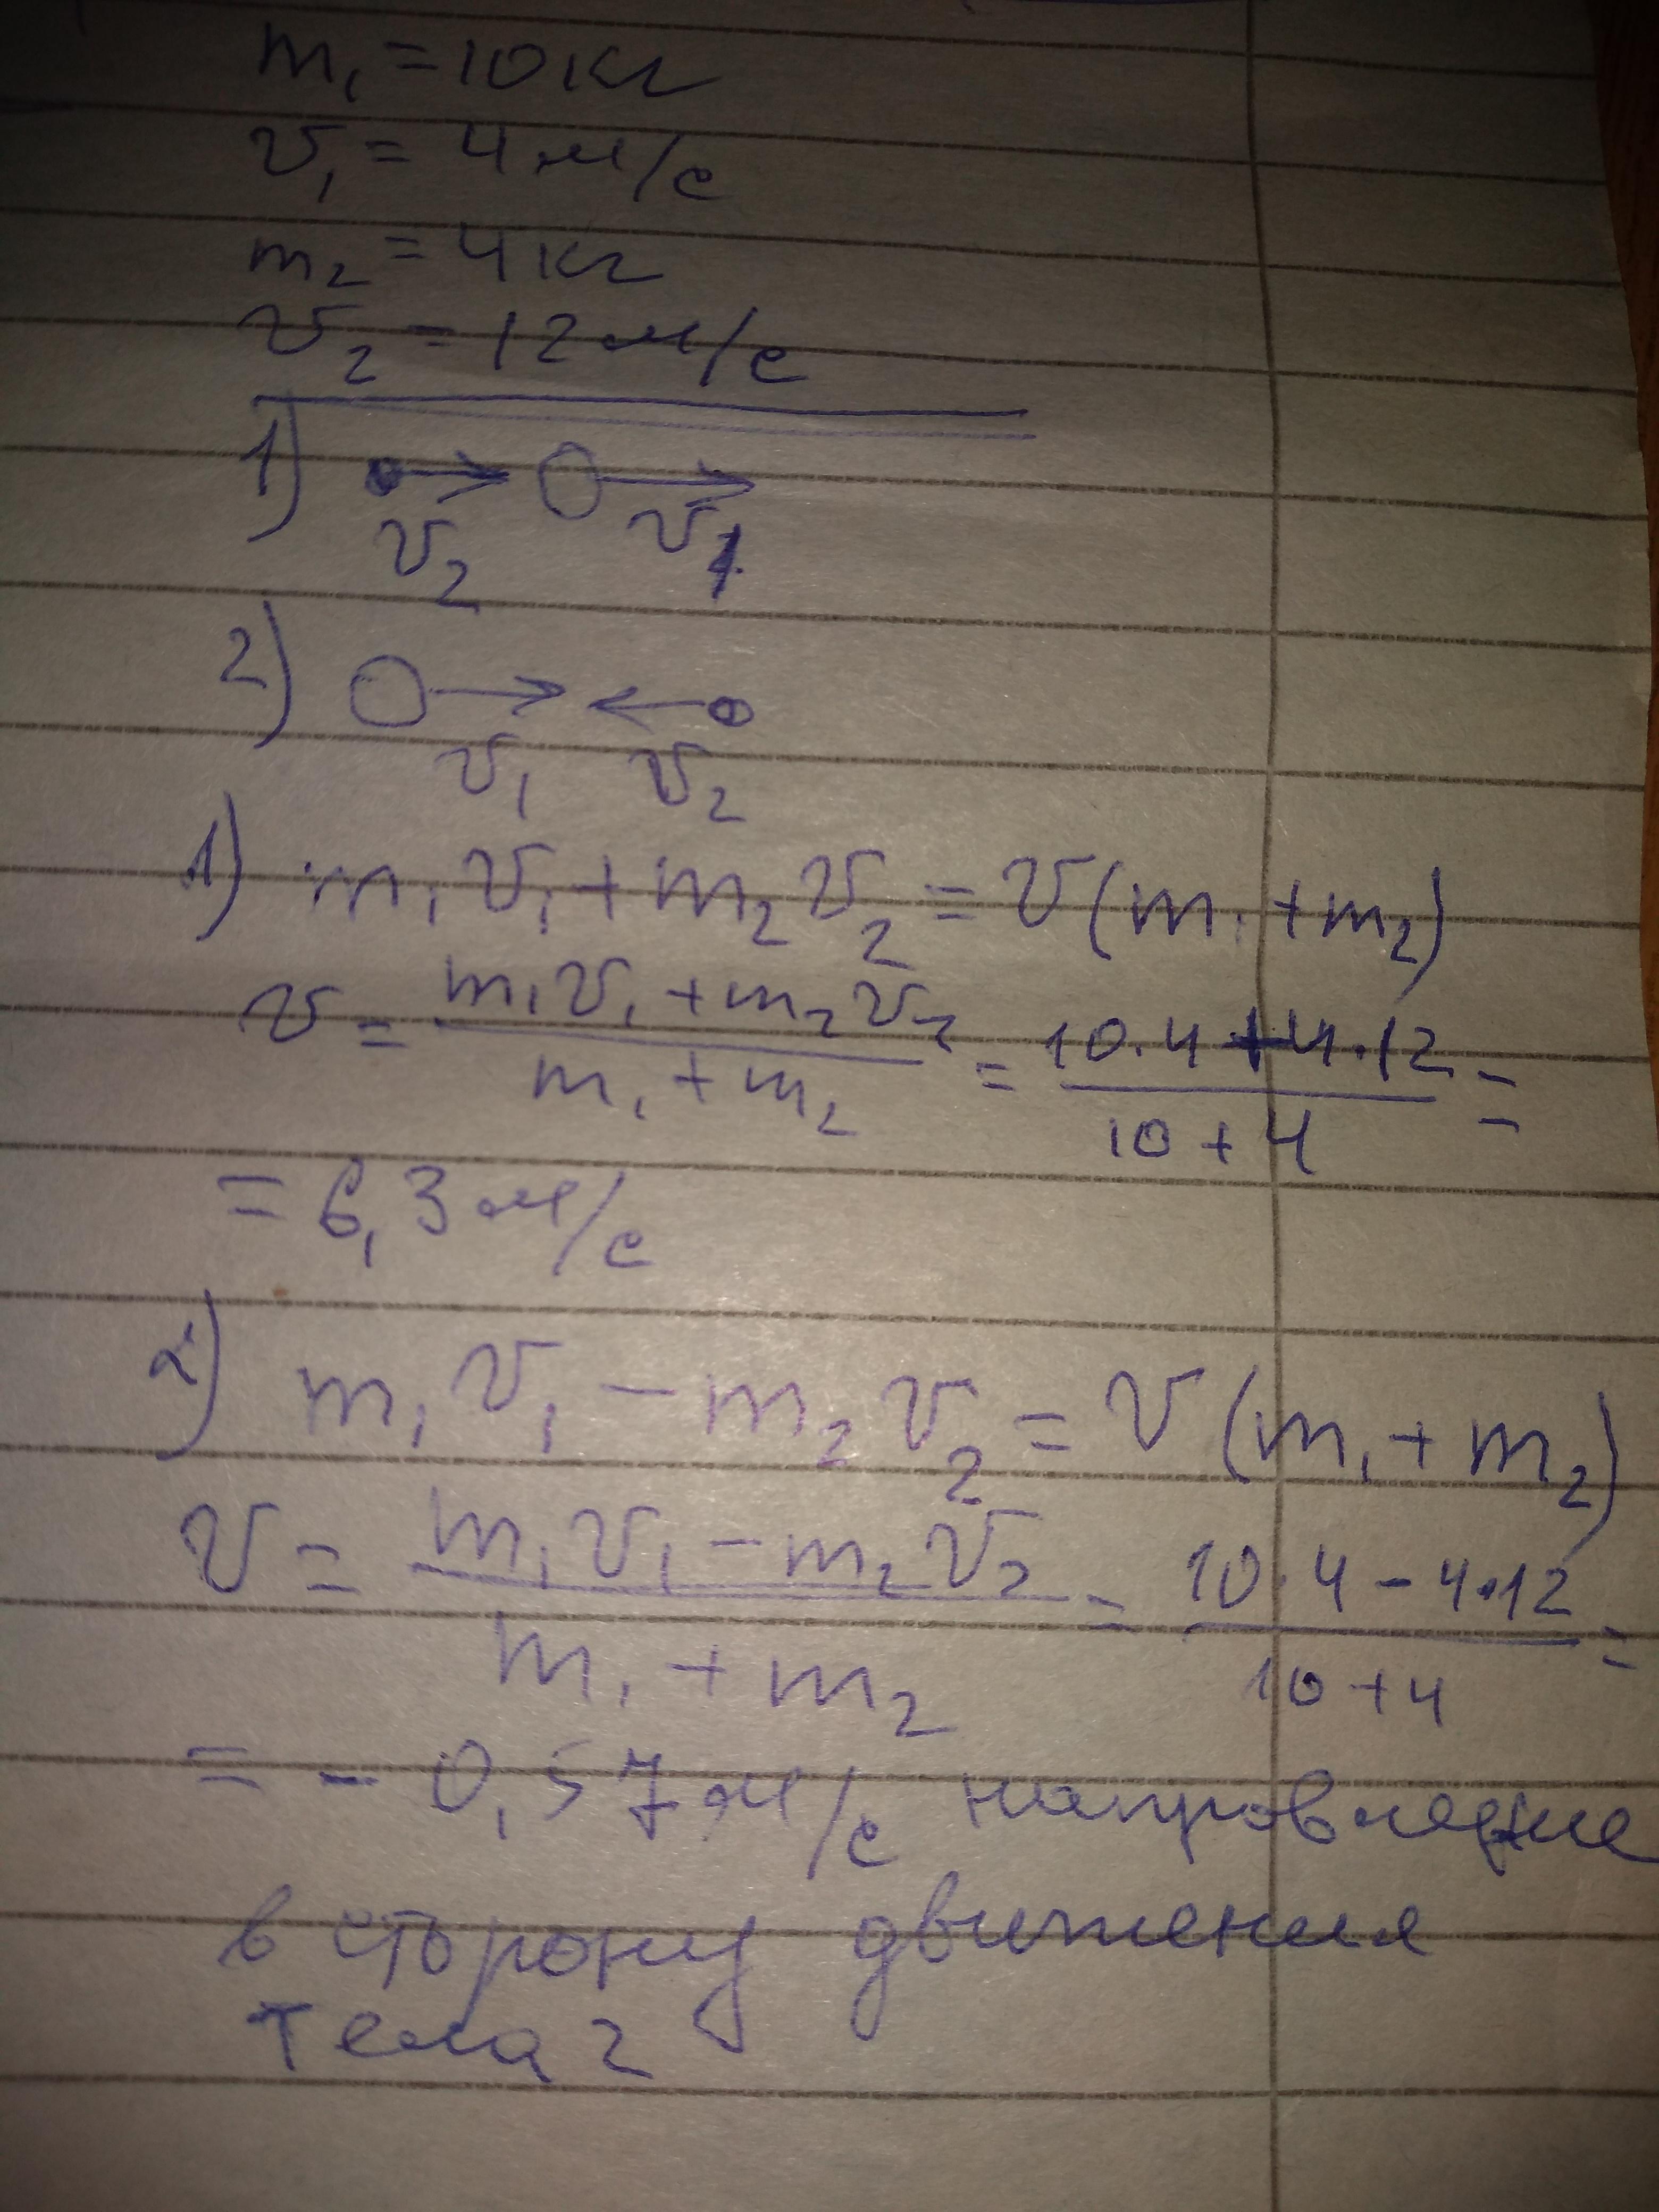 m₁ = 10 кг
v₁ = 4 м/с
m₂ = 4 кг
v₂ = 12 м/с
1)
v₂ v₁
2)
v₁ v₂
1) m₁v₁ + m₂v₂ = v(m₁ + m₂)
v = (m₁v₁ + m₂v₂)/(m₁ + m₂) = (10·4 + 4·12)/(10 + 4) =
= 6,3 м/с
2) m₁v₁ - m₂v₂ = v(m₁ + m₂)
v = (m₁v₁ - m₂v₂)/(m₁ + m₂) = (10·4 - 4·12)/(10 + 4) =
= - 0,57 м/с
в сторону движения
тела 2